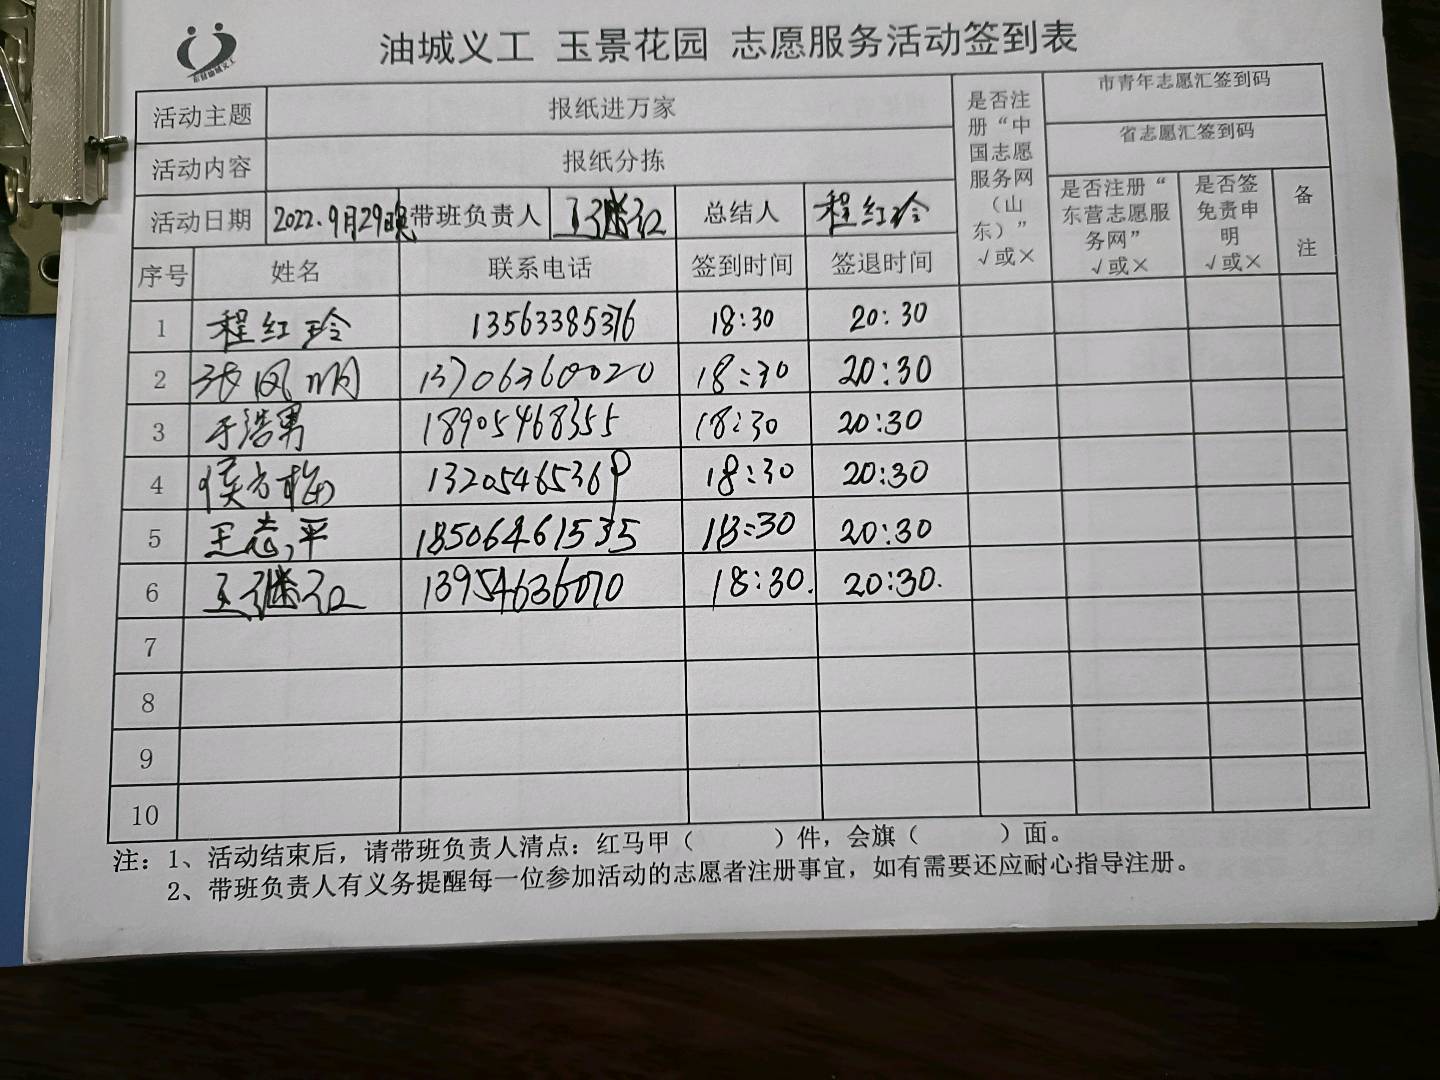 油城义工 玉景花园 志愿服务活动签到表
东营油城义工
活动主题 报纸进万家 是否注册“中国志愿服务网（山东）”√或× 市青年志愿汇签到码
活动内容 报纸分拣 省志愿汇签到码
活动日期 2022.9月29晚 带班负责人 王继红 总结人 程红玲 是否注册“东营志愿服务网”√或× 是否签免责申明√或× 备注
序号 姓名 联系电话 签到时间 签退时间
1 程红玲 13563385376 18:30 20:30
2 张凤明 13706360020 18:30 20:30
3 于浩男 18905468355 18:30 20:30
4 侯方梅 13205465369 18:30 20:30
5 王志平 18506461535 18:30 20:30
6 王继红 13954636070 18:30. 20:30.
7
8
9
10
注：1、活动结束后，请带班负责人清点：红马甲（ ）件，会旗（ ）面。
2、带班负责人有义务提醒每一位参加活动的志愿者注册事宜，如有需要还应耐心指导注册。